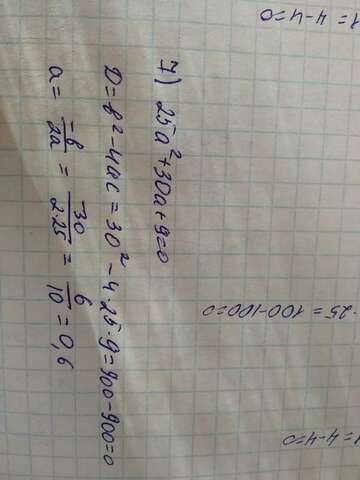 1 = 4-4=0
7) 25a²+30a+9=0
D=b²-4ac=30²-4·25·9=900-900=0
a= -b/2a = -30/2·25 = 6/10 =0,6
·25=100-100=0
1=4-4=0